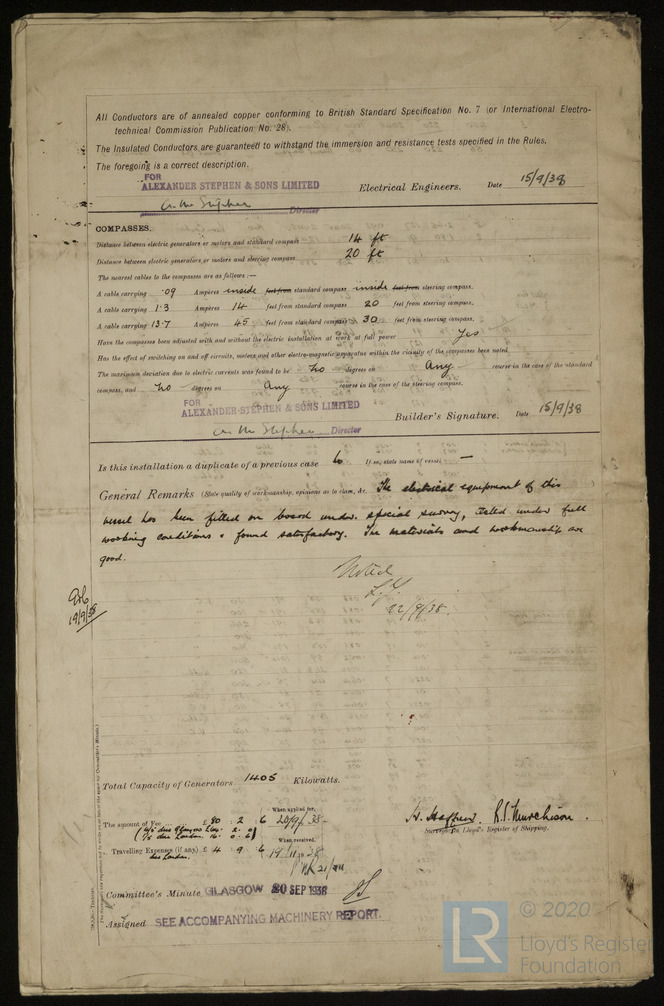 All Conductors are of annealed copper conforming to British Standard Specification No. 7 (or International Electro-
technical Commission Publication No. 28).
The Insulated Conductors are guaranteed to withstand the immersion and resistance tests specified in the Rules.
The foregoing is a correct description.
FOR
ALEXANDER STEPHEN & SONS LIMITED
Electrical Engineers. Date 15/9/38
Stephen Director
COMPASSES.
Distance between electric generators or motors and standard compass 14 ft
Distance between electric generators or motors and steering compass 20 ft
The nearest cables to the compasses are as follows:—
A cable carrying .09 Ampères inside feet from standard compass inside feet from steering compass.
A cable carrying 1.3 Ampères 14 feet from standard compass 20 feet from steering compass.
A cable carrying 13.7 Ampères 45 feet from standard compass 30 feet from steering compass.
Have the compasses been adjusted with and without the electric installation at work at full power Yes
Has the effect of switching on and off circuits, motors and other electro-magnetic apparatus within the vicinity of the compasses been noted
The maximum deviation due to electric currents was found to be No degrees on Any course in the case of the standard
compass, and No degrees on Any course in the case of the steering compass.
FOR
ALEXANDER STEPHEN & SONS LIMITED
Builder's Signature. Date 15/9/38
Stephen Director
Is this installation a duplicate of a previous case If so, state name of vessel —
General Remarks (State quality of workmanship, opinions as to class, &c. The electrical equipment of this
vessel has been fitted on board under special survey, tested under full
working conditions & found satisfactory. The materials and workmanship are
good.
Noted
22/9/38.
19/9/38
Total Capacity of Generators 1405 Kilowatts.
The amount of Fee ... £ 80 : 2 : 6 When applied for, 20/9/38
due Glasgow
due London
Travelling Expenses (if any) £ 4 : 9 : 6 When received, 19.11.38
due London.
Surveyor to Lloyd's Register of Shipping.
R. S. Murchison
Committee's Minute GLASGOW 20 SEP 1938
Assigned SEE ACCOMPANYING MACHINERY REPORT.
LR
© 2020
Lloyd's Register
Foundation